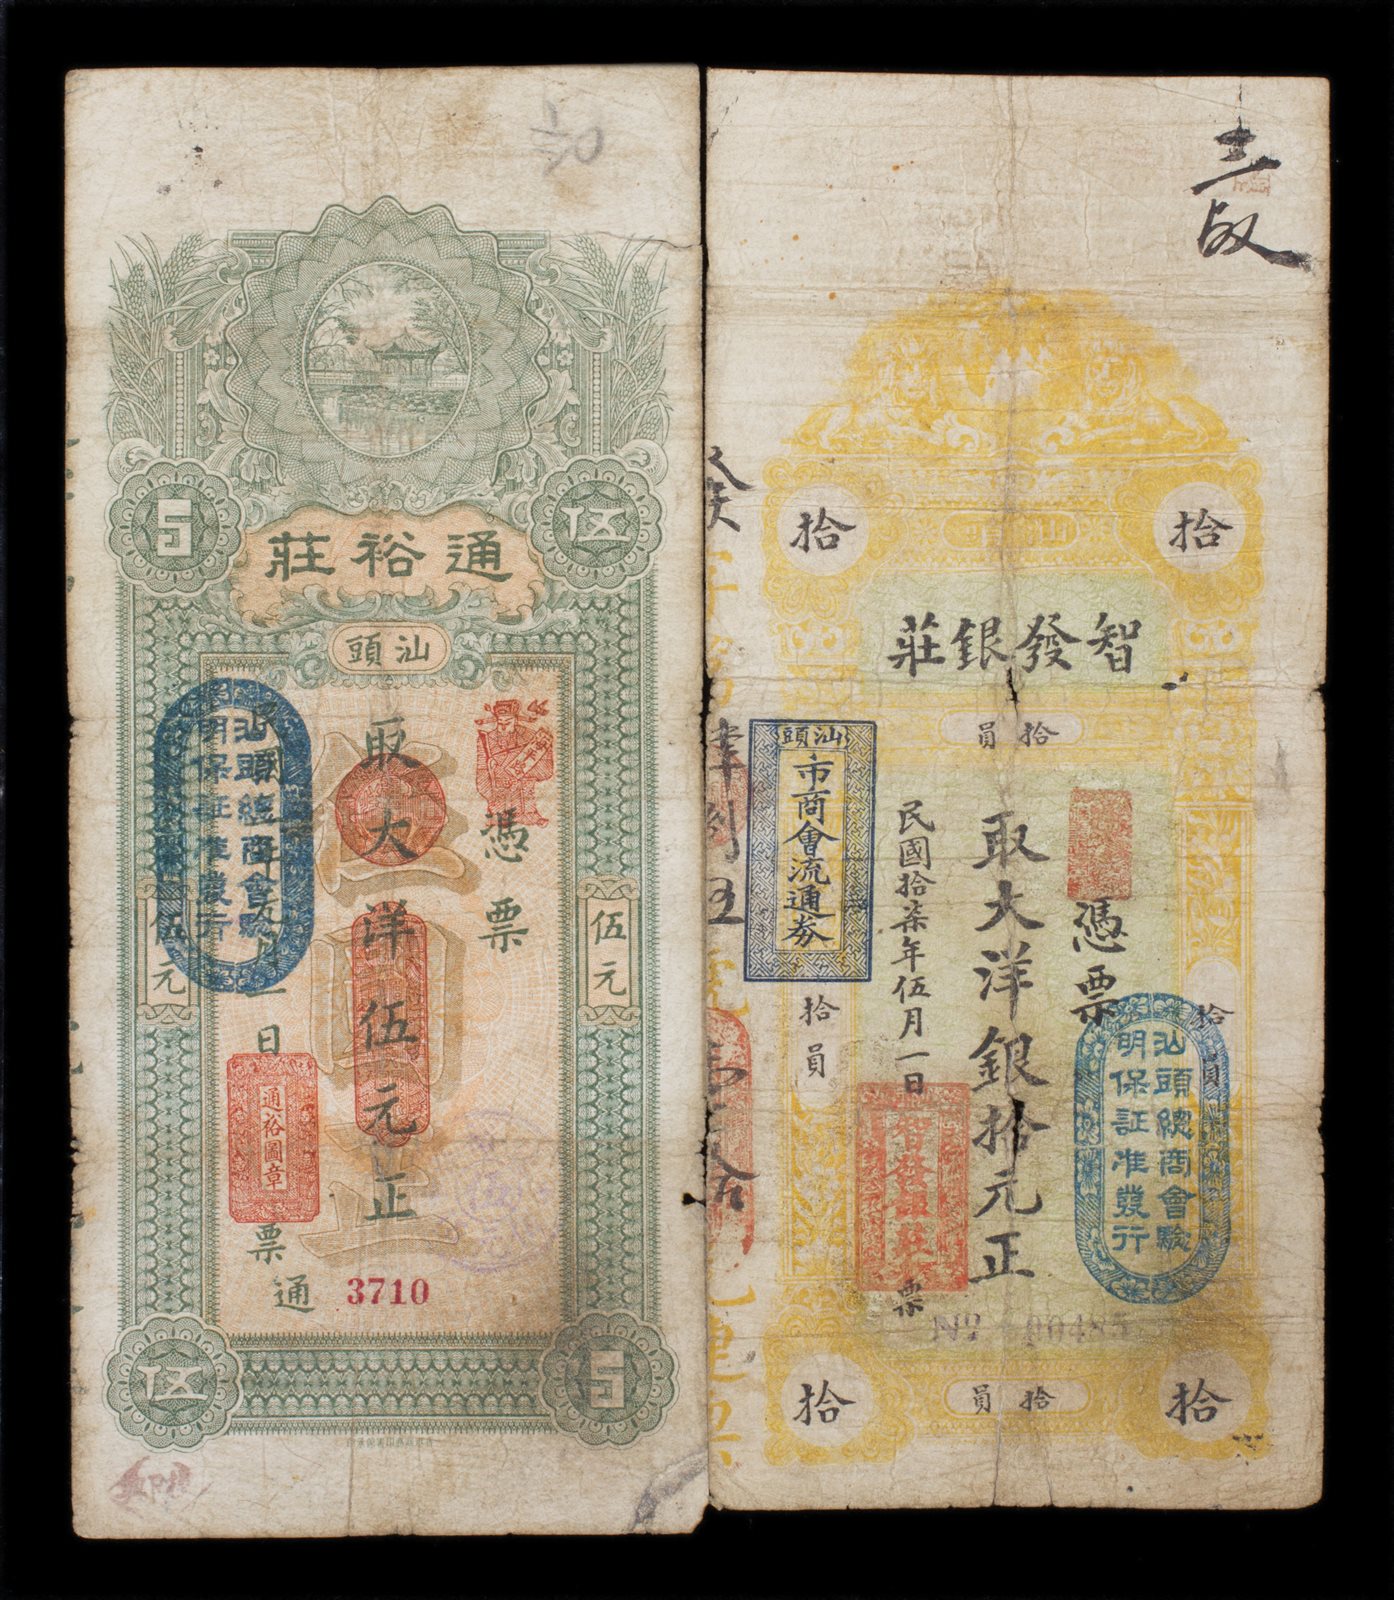 通裕莊
汕頭
5
伍
憑票
取大洋伍元正
伍圓正
伍元
伍元
日
票
通
3710
通裕圖章
汕頭總商會驗
明保証准發行
伍
5
拾
拾
智發銀莊
拾員
憑票
取大洋銀拾元正
民國拾柒年伍月一日
票
汕頭
市商會流通券
拾員
拾員
汕頭總商會驗
明保証准發行
智發銀莊
No 00485
拾員
拾
拾